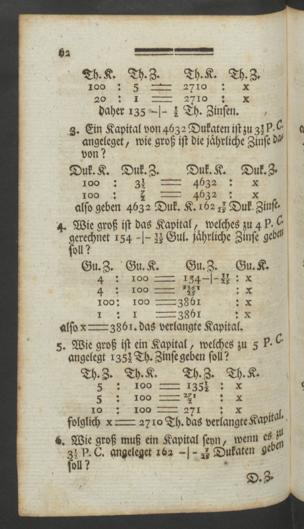 62
Th. K. Th. Z. Th. K. Th. Z.
100 : 5 = 2710 : x
20 : 1 = 2710 : x
daher 135 -|- ½ Th. Zinsen.
3. Ein Kapital von 4632 Dukaten ist zu 3½ P. C.
angeleget, wie groß ist die jährliche Zinse da-
von?
Duk. K. Duk. Z. Duk. K. Duk. Z.
100 : 3½ = 4632 : x
100 : 7/2 = 4632 : x
also geben 4632 Duk. K. 162 3/25 Duk. Zinse.
4. Wie groß ist das Kapital, welches zu 4 P. C.
gerechnet 154 -|- 11/25 Gul. jährliche Zinse geben
soll?
Gu. Z. Gu. K. Gu. Z. Gu. K.
4 : 100 = 154 -|- 11/25 : x
4 : 100 = 3861/25 : x
100 : 100 = 3861 : x
1 : 1 = 3861 : x
also x = 3861. das verlangte Kapital.
5. Wie groß ist ein Kapital, welches zu 5 P. C.
angelegt 135½ Th. Zinse geben soll?
Th. Z. Th. K. Th. Z. Th. K.
5 : 100 = 135½ : x
5 : 100 = 271/2 : x
10 : 100 = 271 : x
folglich x = 2710 Th. das verlangte Kapital.
6. Wie groß muß ein Kapital seyn, wenn es zu
3½ P. C. angeleget 162 -|- 3/25 Dukaten geben
soll?
D. Z.